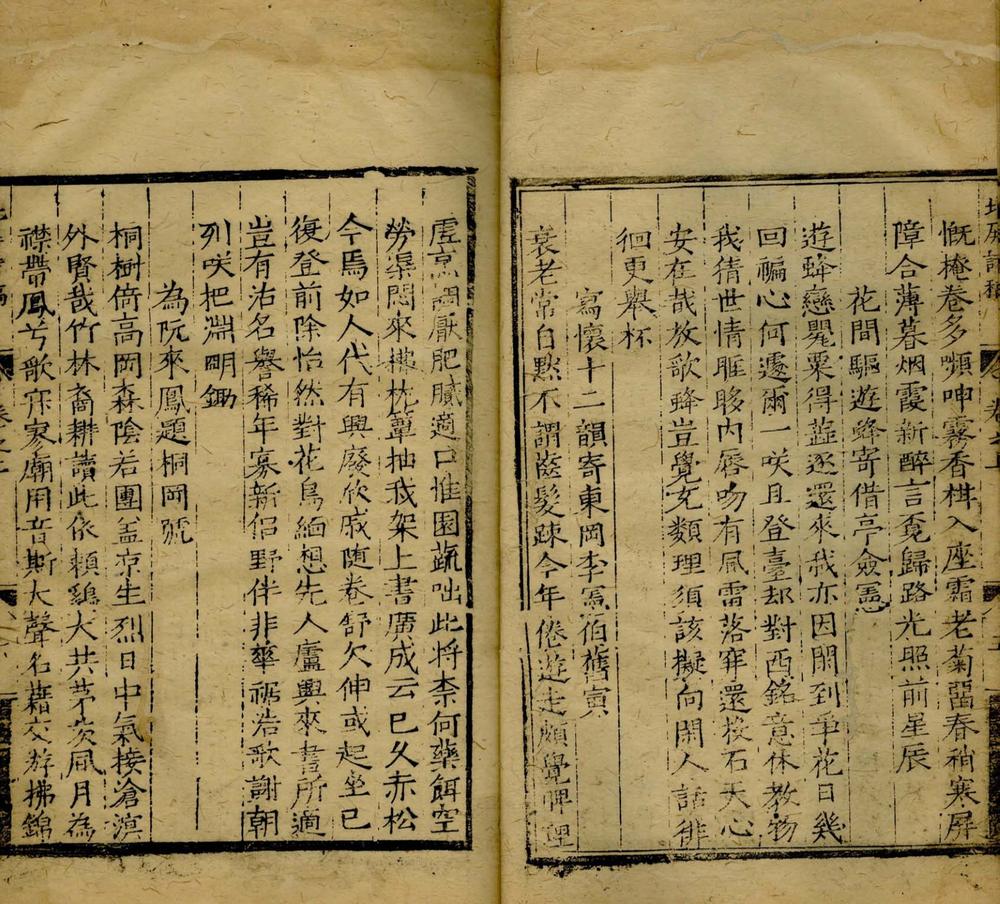 慨掩卷多嚬呻霧香棋入座霜老菊留春稍寒屏
障合薄暮烟霞新醉言覓歸路光照前星辰
花間驅遊蜂寄借亭僉憲
遊蜂戀罌粟得蕋逐還來我亦因閑到爭花日幾
回褊心何遽爾一咲且登臺却對西銘意休教物
我猜世情睚眵內唇吻有風雷落穽還投石天心
安在哉放歌蜂豈覺充類理須該擬向閑人話徘
徊更舉杯
寫懷十二韻寄東岡李憲伯舊寅
衰老常自默不謂齒髮踈今年倦遊走頗覺脾理
虛烹調厭肥膩適口惟園蔬咄此將柰何藥餌空
勞渠悶來攤枕簟抽我架上書廣成云已久赤松
今焉如人代有興廢欣戚随卷舒欠伸或起坐已
復登前除怡然對花鳥緬想先人廬興來書所適
豈有沽名譽稀年寡新侶野伴非華裾浩歌謝朝
列咲把淵明鋤
為阮來鳳題桐岡號
桐樹倚高岡森陰若團盖凉生烈日中氣接滄溟
外賢哉竹林裔耕讀此依賴鷄犬共茅茨風月為
襟帶鳳兮歌寂寥廟用音斯大聲名藉交游拂錦